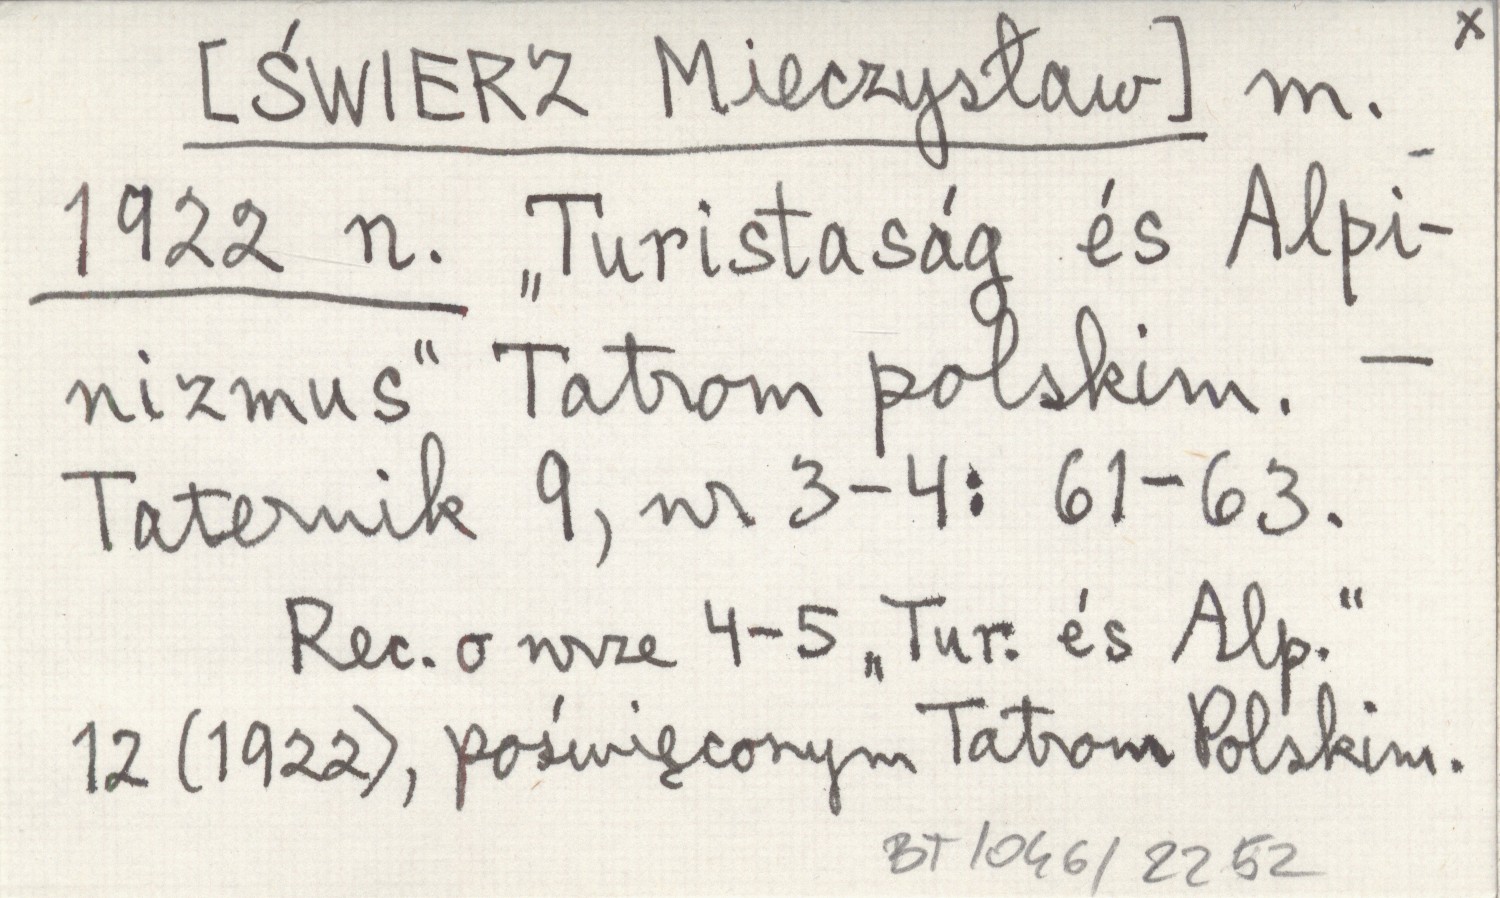 [ŚWIERZ Mieczysław] m. x
1922 n. „Turistaság és Alpi-
nizmus“ Tatrom polskim. —
Taternik 9, nr 3-4: 61-63.
Rec. o nrze 4-5 „Tur. és Alp.“
12 (1922), poświęconym Tatrom Polskim.
BT/046/2252